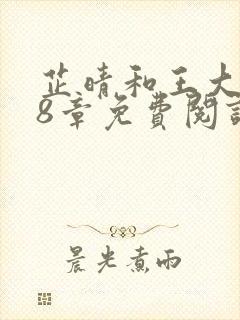 芷晴和王大
8章免費閱讀
晨光煮雨